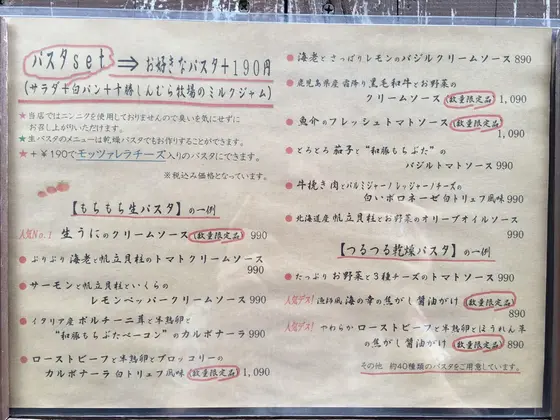 パスタset ⇒ お好きなパスタ+190円
(サラダ+白パン+十勝しんむら牧場のミルクジャム)
★当店ではニンニクを使用しておりませんので臭いを気にせずに
お召し上がりいただけます。
★生パスタのメニューは乾燥パスタでもお作りすることができます。
★+￥190でモッツァレラチーズ入りのパスタにできます。
※税込み価格となっています。
【もちもち生パスタ】の一例
人気No.1 生うにのクリームソース(数量限定品) 990
●ぷりぷり海老と帆立貝柱のトマトクリームソース 990
●サーモンと帆立貝柱といくらの
レモンペッパークリームソース 990
●イタリア産ポルチーニ茸と半熟卵と
“和豚もちぶたベーコン”のカルボナーラ 990
●ローストビーフと半熟卵とブロッコリーの
カルボナーラ 白トリュフ風味(数量限定品) 1,090
●海老とさっぱりレモンのバジルクリームソース 890
●鹿児島県産霜降り黒毛和牛とお野菜の
クリームソース(数量限定品) 1,090
●魚介のフレッシュトマトソース(数量限定品) 1,090
●とろとろ茄子と“和豚もちぶた”の
バジルトマトソース 990
●牛挽き肉とパルミジャーノレッジャーノチーズの
白いボロネーゼ白トリュフ風味 990
●北海道産帆立貝柱とお野菜のオリーブオイルソース 990
【つるつる乾燥パスタ】の一例
●たっぷりお野菜と3種チーズのトマトソース 890
人気デス! 漁師風海の幸の焦がし醤油がけ(数量限定品) 890
人気デス! やわらかローストビーフと半熟卵とほうれん草
の焦がし醤油がけ(数量限定品) 890
その他 約40種類のパスタをご用意しています。